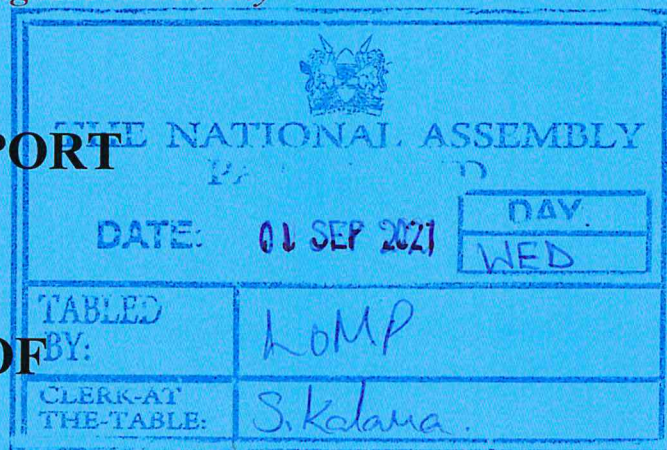 PORT
THE NATIONAL ASSEMBLY
DATE: 01 SEP 2021
DAY.
WED
TABLED
BY:
LOMP
OF
CLERK-AT
THE-TABLE:
S. Kalama.